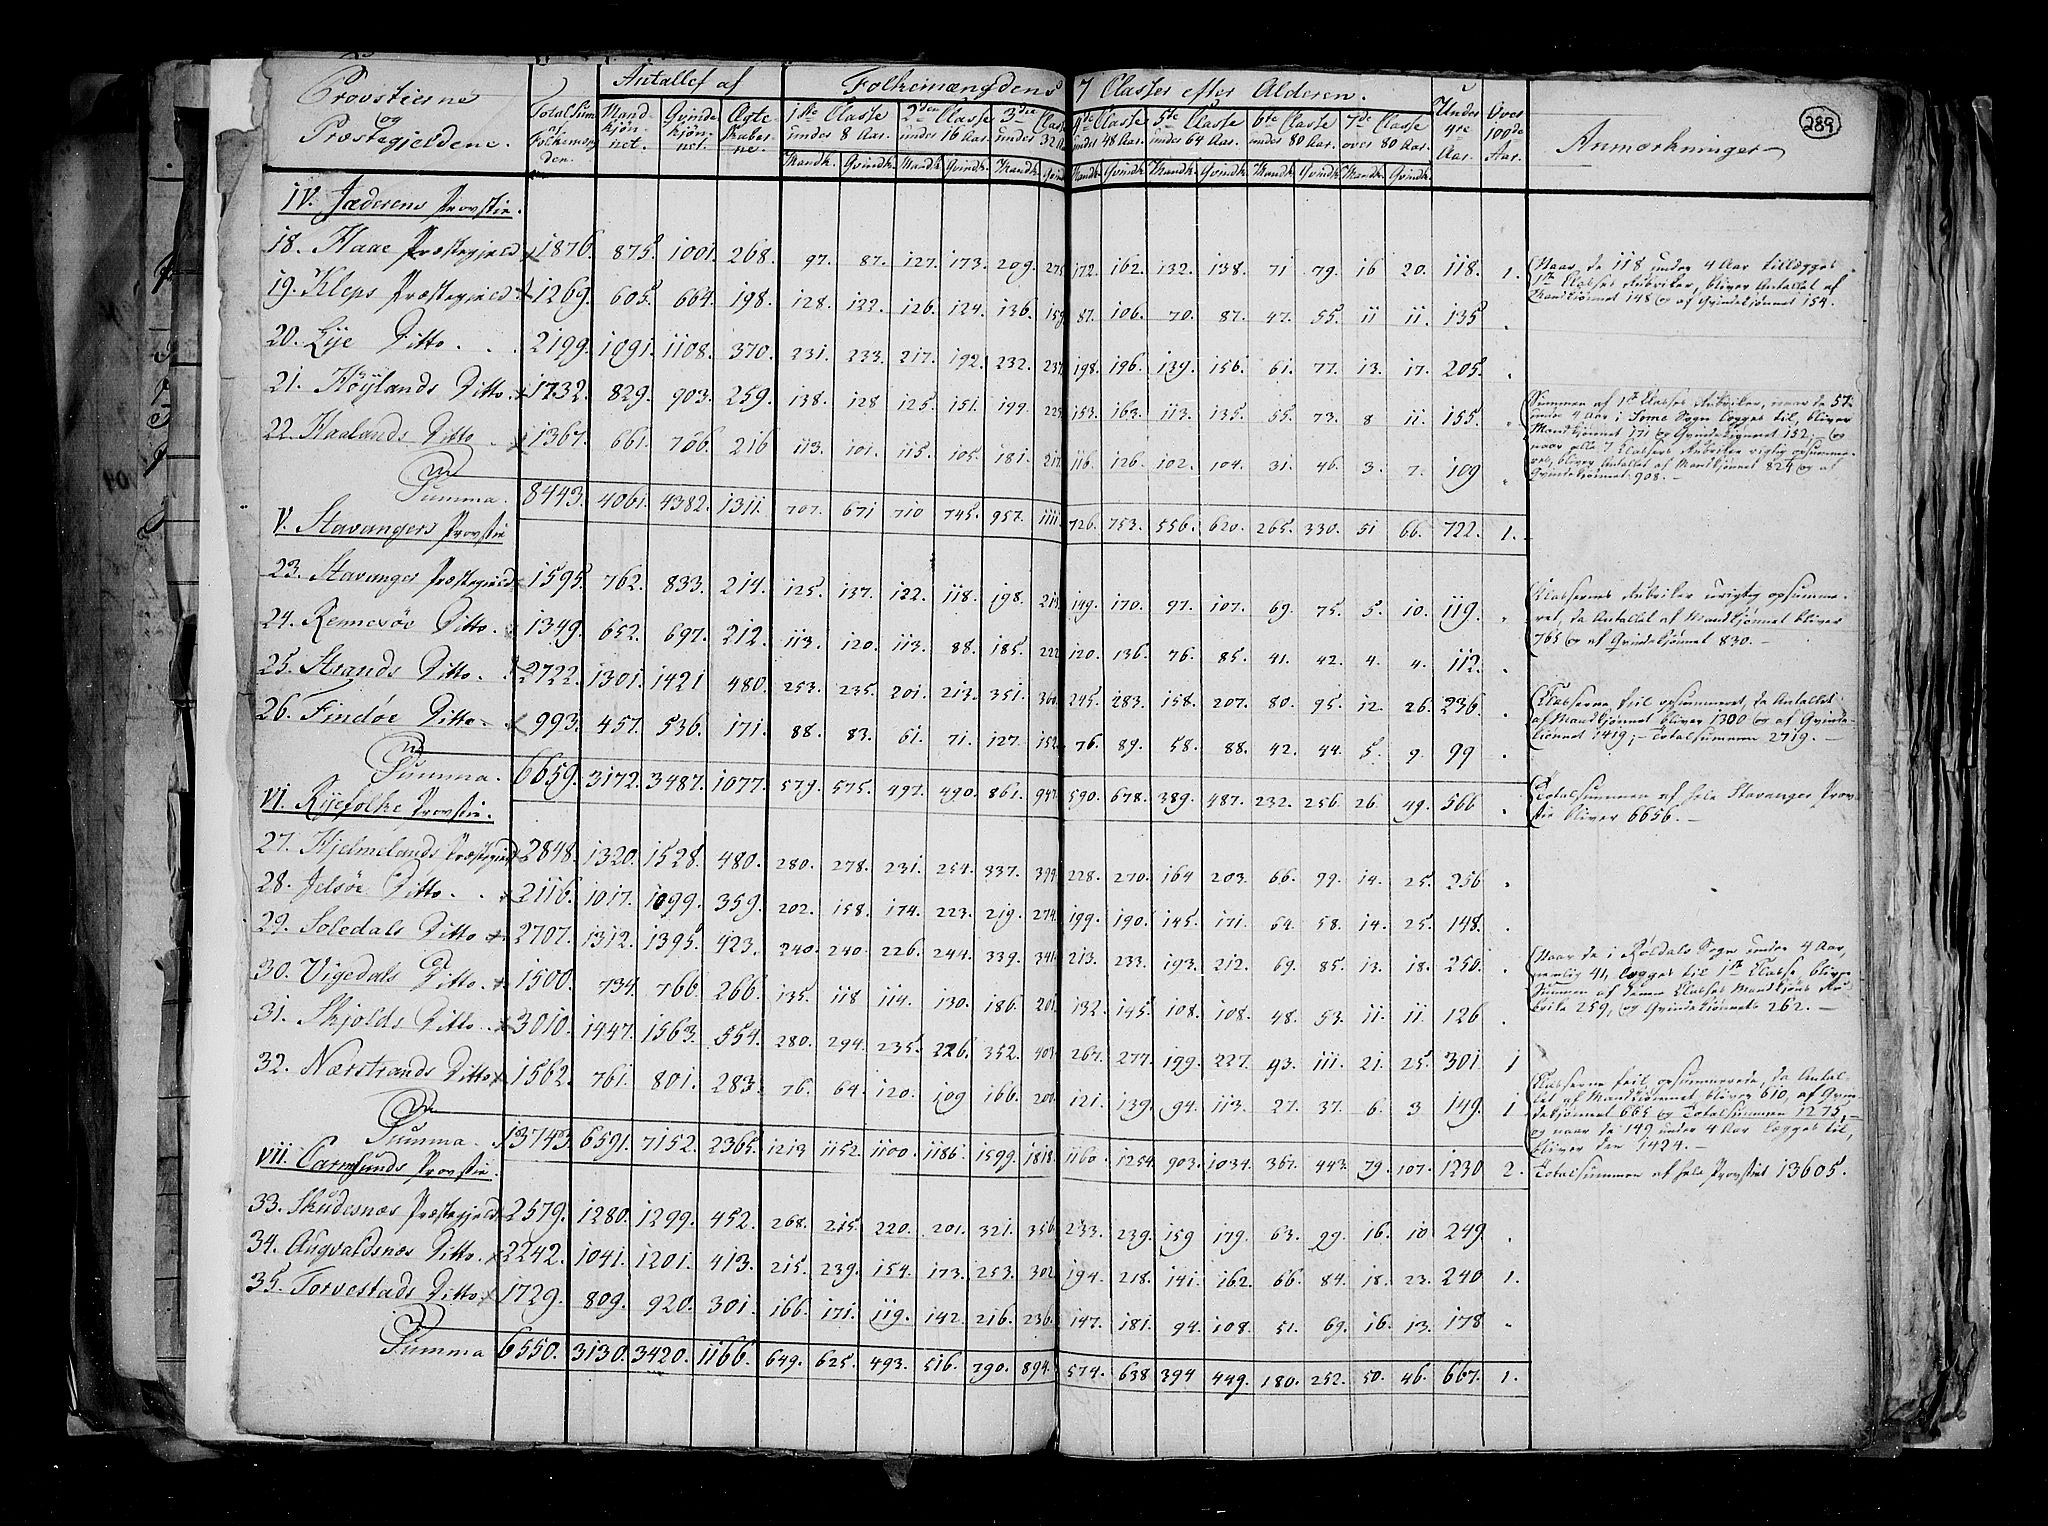 Provstierne
og
Præstegjeldene.
Total Sum
af
Folkemæng
den.
Antallet af
Mand
kjön
net.
Qvinde
kjön
net.
Ægte
skaber
ne.
Folkemængdens 7 Classer efter Alderen.
1ste Classe
under 8 Aar.
2den Classe
under 16 Aar.
3die Class
under 32 Aar
4de Classe
under 48 Aar.
5te Classe
under 64 Aar.
6te Classe
under 80 Aar.
7de Classe
over 80 Aar.
Under
4re
Aar.
Over
100de
Aar.
Anmærkninger
289
Mandk. Qvindk. Mandk. Qvindk. Mandk. Qvind Mandk. Qvindk. Mandk. Qvindk. Mandk. Qvindk. Mandk. Qvindk.
IV. Jæderens Provstie.
18. Haae Præstegjeld 1876. 875. 1001. 268. 97. 87. 127. 173. 209. 275 172. 162. 132. 138. 71 79. 16 20. 118. 1.
19. Kleps Præstegjeld 1269. 605. 664. 198. 128. 122. 126. 124. 136. 159 87. 106. 70. 87. 47. 55. 11 11. 135
20. Lye Ditto 2199. 1091. 1108. 370. 231. 233. 217. 192. 232. 237 198. 196. 139. 156. 61. 77. 13. 17. 205.
21. Höylands Ditto 1732. 829. 903. 259. 138. 128 125. 151. 199. 225 153. 163. 113. 135. 55. 73. 8 11. 155.
22. Haalands Ditto 1367. 661. 706. 216 113. 101. 115. 105. 181. 217 116. 126. 102. 104. 31. 46. 3. 7. 109
Summa. 8443. 4061. 4382. 1311. 707. 671 710 745. 957. 1111 726. 753. 556. 620. 265. 330. 51 66. 722. 1.
V. Stavangers Provstie
23. Stavanger Præstegjeld 1595. 762. 833. 214. 125. 137. 122. 118. 198. 213 149. 170. 97. 107. 69. 75. 5. 10. 119.
24. Rennesöe Ditto 1349. 652. 697. 212. 113. 120. 113. 88. 185. 222 120. 136. 76. 85. 41. 42. 4. 4. 112.
25. Strands Ditto 2722. 1301. 1421 480. 253. 235. 201. 213. 351. 360 245. 283. 158. 207. 80. 95. 12. 26. 236.
26. Findöe Ditto 993. 457. 536. 171. 88. 83. 61. 71. 127. 152 76. 89. 58. 88. 42. 44. 5. 9. 99
Summa. 6659. 3172. 3487. 1077. 579. 575. 497. 490. 861. 947 590. 678. 389. 487. 232. 256. 26. 49. 566
VI. Ryefolke Provstie.
27. Hjelmelands Præstegjeld 2848. 1320. 1528. 480. 280. 278. 231. 254. 337. 399 228. 270. 164 203. 66. 99. 14. 25. 256
28. Jelsöe Ditto 2116. 1017. 1099. 359. 202. 158. 174. 223. 219. 274 199. 190. 145. 171. 64. 58. 14. 25. 148.
29. Soledals Ditto 2707. 1312. 1395. 423. 240. 240. 226. 244. 339. 341 213. 233. 193. 212. 69. 85. 13. 18. 250.
30. Vigedals Ditto 1500. 734. 766. 266. 135. 118 114. 130. 186. 201 132. 145. 108. 108. 48. 53. 11. 11. 126
31. Skjolds Ditto 3010. 1447. 1563. 554. 280. 294. 235. 226. 352. 403 267. 277. 199. 227. 93. 111. 21. 25. 301 1
32. Nærstrands Ditto 1562. 761. 801. 283. 76. 64. 120. 109 166. 200 121. 139. 94. 113. 27. 37. 6. 3 149. 1
Summa. 13743. 6591. 7152. 2365. 1213 1152. 1100. 1186. 1599. 1818 1160. 1254. 903. 1034. 367. 443. 79. 107. 1230 2.
VII. Carmsunds Provstie.
33. Skudesnæs Præstegjeld 2579. 1280. 1299. 452. 268. 215. 220. 201. 321. 356 233. 239. 159 179. 63. 99. 16. 10 249.
34. Augvaldsnæs Ditto 2242. 1041. 1201. 413. 215. 239. 154. 173. 253. 302 194. 218. 141. 162. 66. 84. 18. 23. 240 1.
35. Torvestads Ditto 1729. 809. 920. 301. 166. 171. 119. 142. 216. 236. 147. 181. 94. 108. 51. 69. 16. 13. 178
Summa 6550. 3130. 3420. 1166. 649. 625. 493. 516. 790. 894. 574. 638 394 449. 180. 252. 50. 46. 667. 1.
Naar de 118 under 4 Aar tillægges
1ste Classes Rubriker, bliver Antallet af
Mandkjönnet 148 og af Qvindekjönnet 154.
Summen af 1ste Classes Rubriker, naar de 57
under 4 Aar i Sogn lægges til, bliver
Mandkjönnet 171 og Qvindekjönnet 152, og
naar alle 7 Classers Rubriker rigtig opsumme-
res, bliver Antallet af Mandkjönnet 824 og af
Qvindekjönnet 908.
Classernes Rubriker urigtig opsumme-
ret, da Antallet af Mandkjönnet bliver
765 og af Qvindekjönnet 830.
Classerne feil opsummeret, da Antallet
af Mandkjönnet bliver 1300 og af Qvinde-
kjönnet 1419; Totalsummen 2719.
Totalsummen af hele Stavanger Prov-
stie bliver 6656.
Naar de i Röldals Sogn under 4 Aar,
nemlig 41, lægges til 1ste Classe, bliver
Summen af denne Classes Mandkjöns Ru-
brik 259, og Qvindekjönnets 262.
Classerne feil opsummerede, da Antal-
let af Mandkjönnet bliver 610, af Qvin-
dekjönnet 665 og Totalsummen 1275,
og naar de 149 under 4 Aar lægges til,
bliver den 1424.
Totalsummen af hele Provstiet 13605.